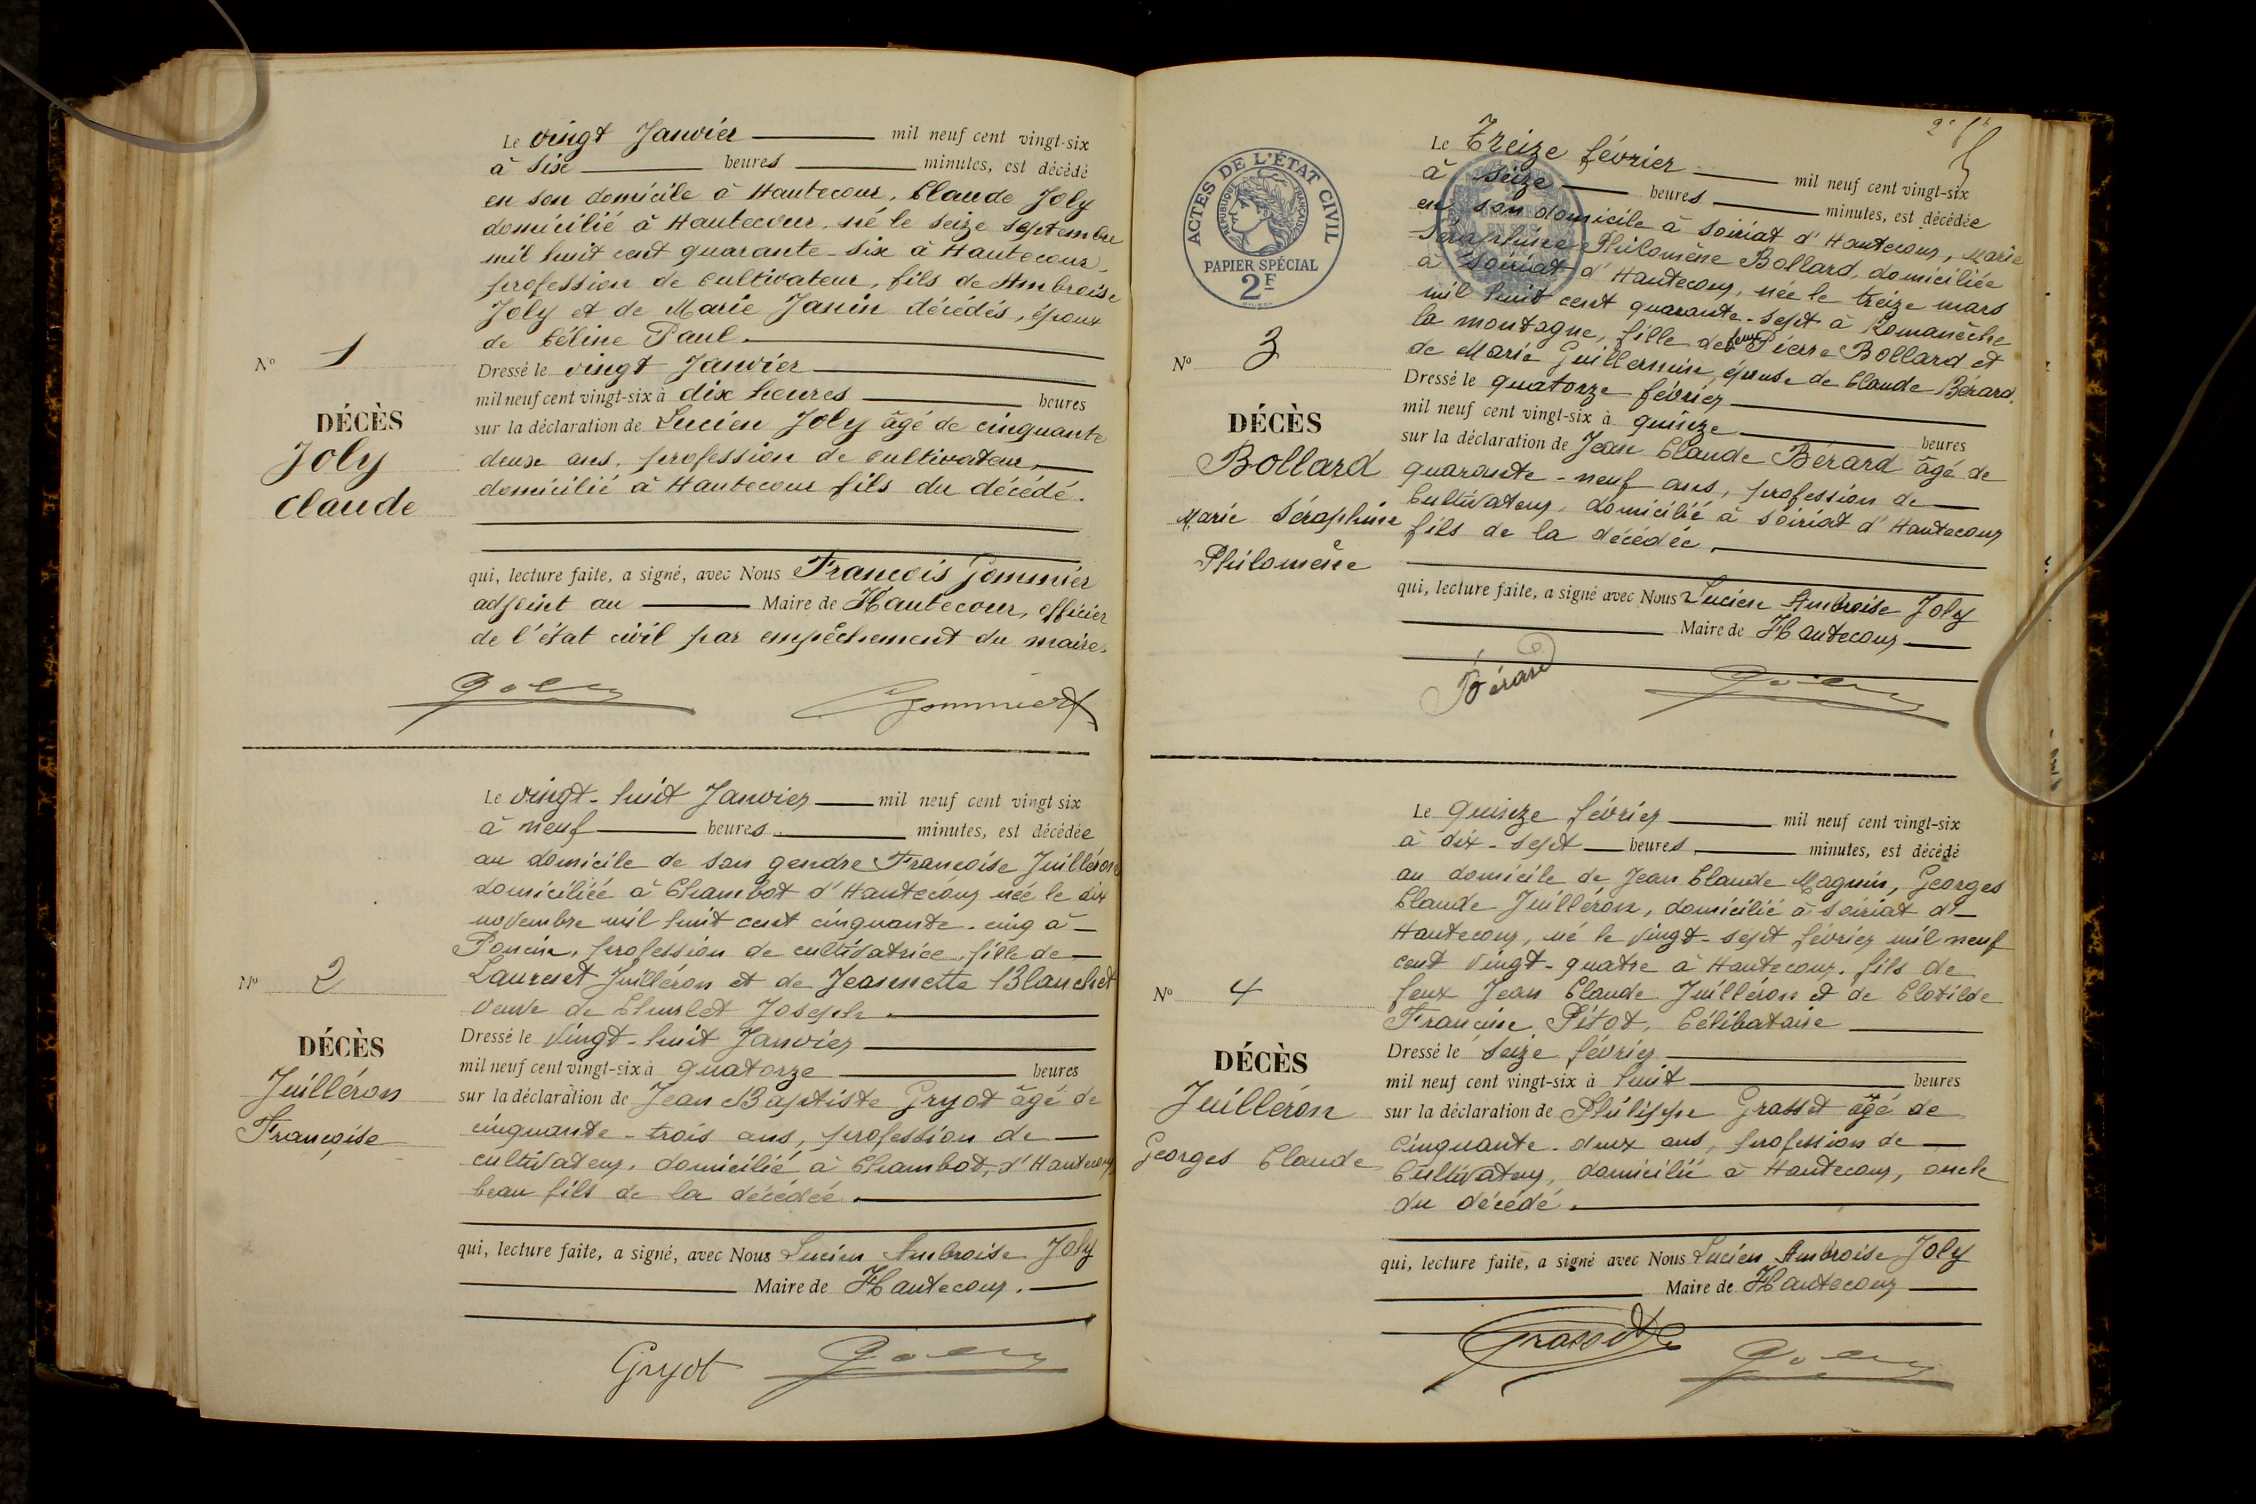 Le vingt Janvier mil neuf cent vingt-six
à six heures minutes, est décédé
en son domicile à Hautecour, Claude Joly
domicilié à Hautecour, né le seize septembre
mil huit cent quarante-six à Hautecour,
profession de cultivateur, fils de Ambroise
Joly et de Marie Janin décédés, époux
de Céline Paul.
Nº 1
Dressé le vingt Janvier
mil neuf cent vingt-six à dix heures heures
DÉCÈS
Joly
Claude
sur la déclaration de Lucien Joly âgé de cinquante
deux ans, profession de cultivateur,
domicilié à Hautecour fils du décédé.
qui, lecture faite, a signé, avec Nous François Gommier
adjoint au Maire de Hautecour, officier
de l'état civil par empêchement du maire.
Joly Gommier
Le vingt-huit Janvier mil neuf cent vingt six
à neuf heures minutes, est décédée
au domicile de son gendre Françoise Juilléron
domiciliée à Chambod d'Hautecour née le dix
novembre mil huit cent cinquante-cinq à
Poncin, profession de cultivatrice, fille de
Laurent Juilléron et de Jeannette Blanchet
veuve de Joseph.
Nº 2
Dressé le vingt-huit Janvier
mil neuf cent vingt-six à quatorze heures
DÉCÈS
Juilléron
Françoise
sur la déclaration de Jean Baptiste Gryot âgé de
cinquante-trois ans, profession de
cultivateur, domicilié à Chambod, d'Hautecour
beau fils de la décédée.
qui, lecture faite, a signé, avec Nous Lucien Ambroise Joly
Maire de Hautecour.
Gryot Joly
ACTES DE L'ÉTAT CIVIL
RÉPUBLIQUE FRANÇAISE
PAPIER SPÉCIAL
2F
Le Treize février mil neuf cent vingt-six
à seize heures minutes, est décédée
en son domicile à Soiriat d'Hautecour, Marie
Séraphine Philomène Bollard, domiciliée
à Soiriat d'Hautecour, née le treize mars
mil huit cent quarante-sept à Romanèche
la montagne, fille de feux Pierre Bollard et
de Marie Guillermin, épouse de Claude Bérard.
Nº 3
Dressé le quatorze février
mil neuf cent vingt-six à quinze heures
DÉCÈS
Bollard
Marie Séraphine
Philomène
sur la déclaration de Jean Claude Bérard âgé de
quarante-neuf ans, profession de
Cultivateur, domicilié à Soiriat d'Hautecour
fils de la décédée,
qui, lecture faite, a signé avec Nous Lucien Ambroise Joly
Maire de Hautecour
Bérard Joly
Le quinze février mil neuf cent vingt-six
à dix-sept heures minutes, est décédé
au domicile de Jean Claude Magnin, Georges
Claude Juilléron, domicilié à Soiriat d'
Hautecour, né le vingt-sept février mil neuf
cent vingt-quatre à Hautecour, fils de
feux Jean Claude Juilléron et de Clotilde
Francine Pitot, Célibataire
Nº 4
Dressé le seize février
mil neuf cent vingt-six à huit heures
DÉCÈS
Juilléron
Georges Claude
sur la déclaration de Philippe Grasset âgé de
Cinquante-deux ans, profession de
Cultivateur, domicilié à Hautecour, oncle
du décédé.
qui, lecture faite, a signé avec Nous Lucien Ambroise Joly
Maire de Hautecour
Grasset Joly